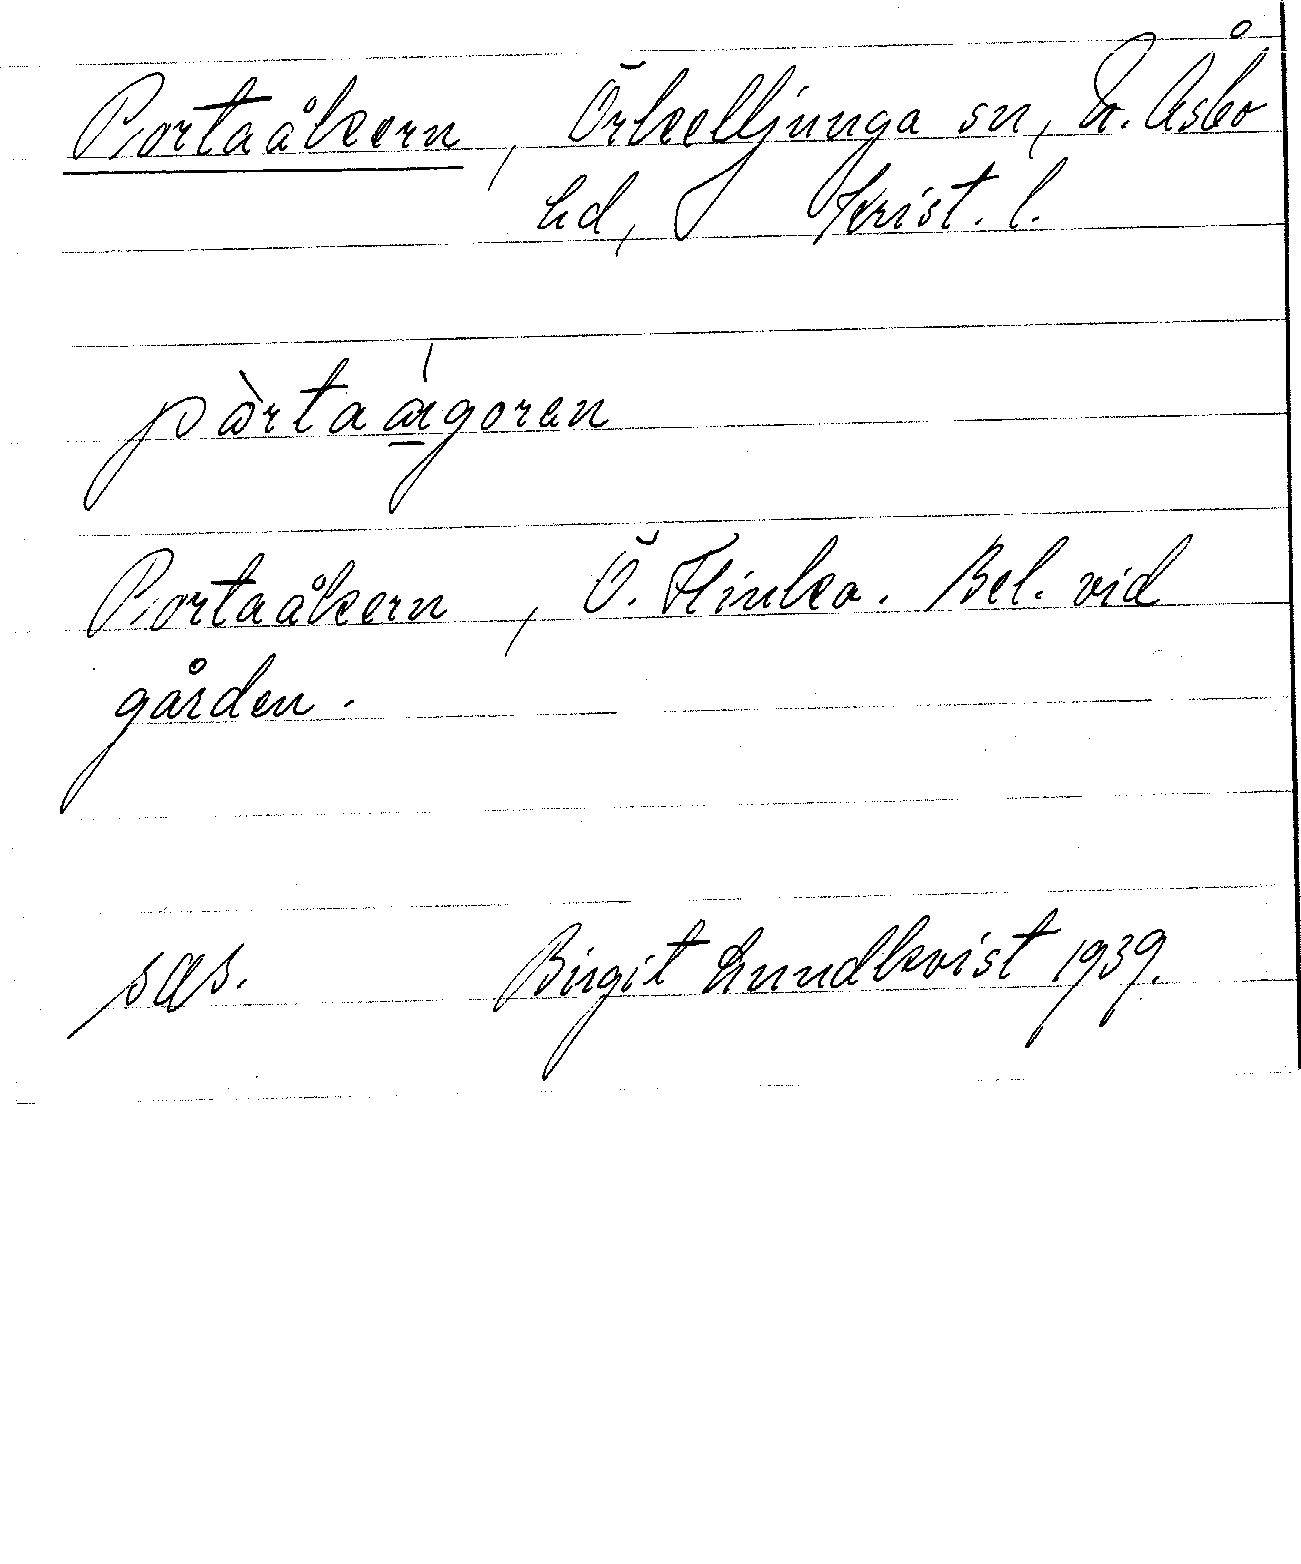 Portaåkern, Örkelljunga sn, N. Åsbo
hd, Krist. l.
pàrtaágoren
Portaåkern, Ö. Flinka. Bel. vid
gården.
sas. Birgit Lundkvist 1939.